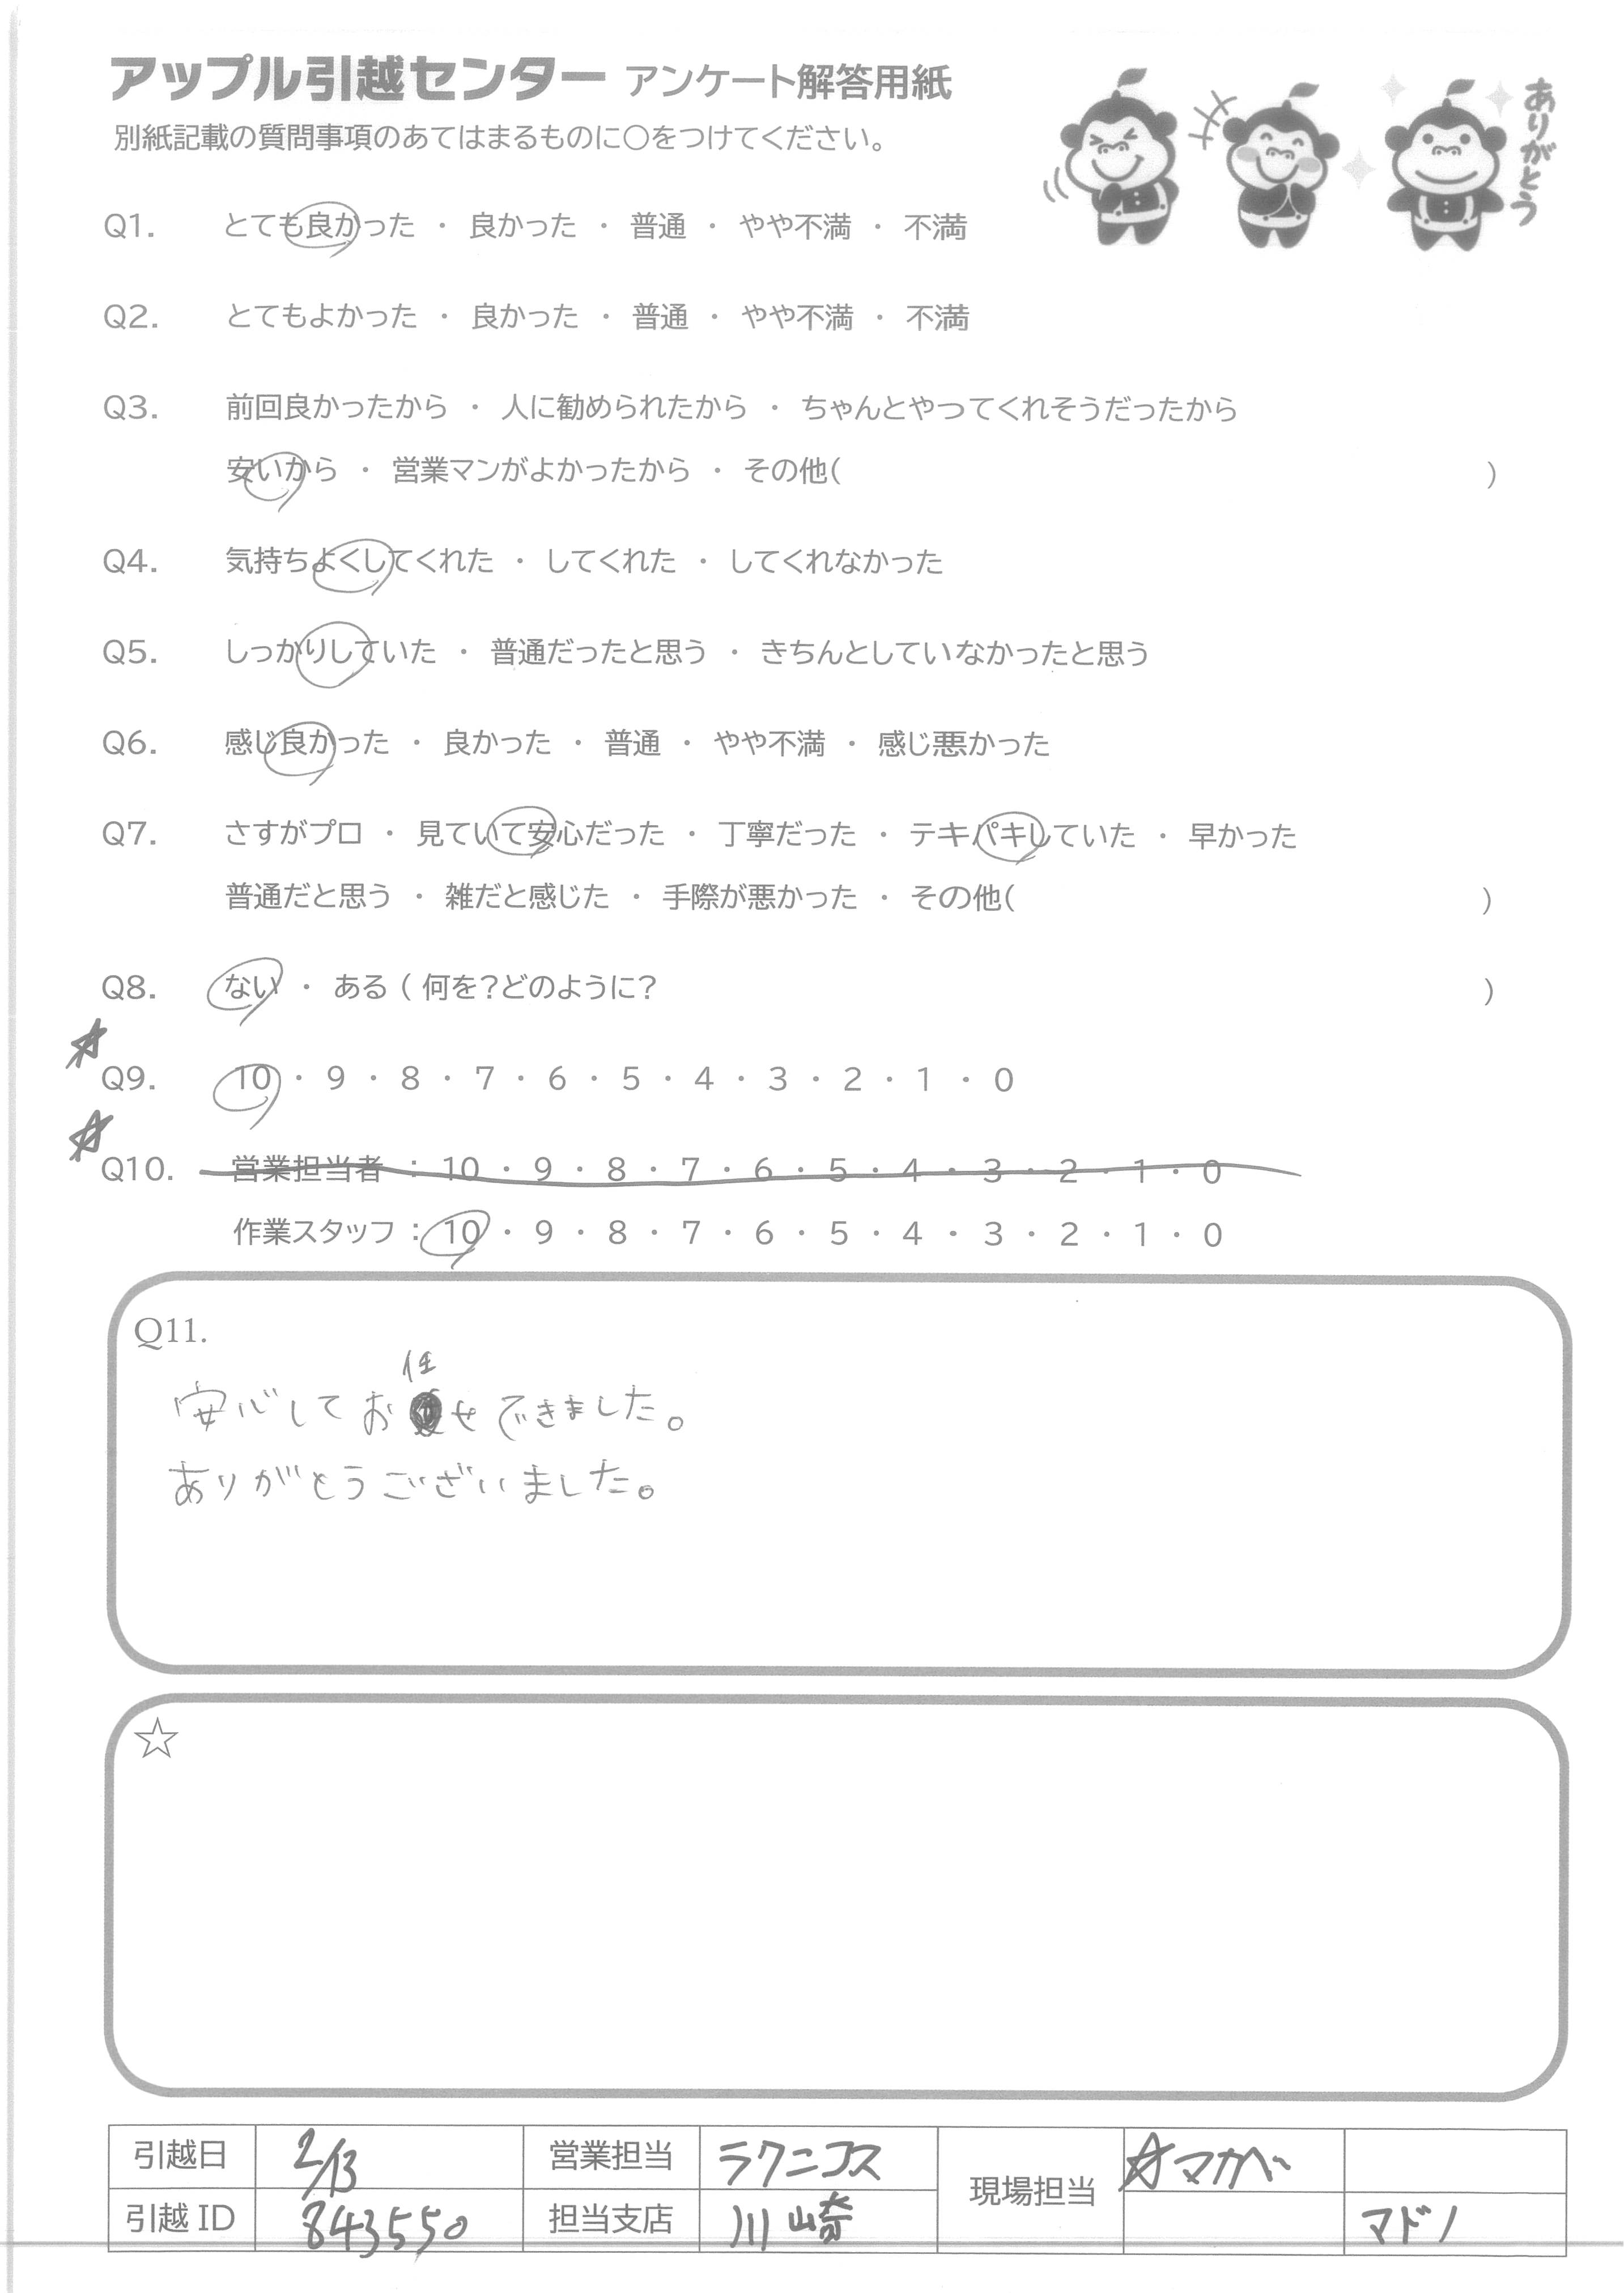 アップル引越センター アンケート解答用紙
ありがとう
別紙記載の質問事項のあてはまるものに○をつけてください。
Q1. とても良かった ・ 良かった ・ 普通 ・ やや不満 ・ 不満
Q2. とてもよかった ・ 良かった ・ 普通 ・ やや不満 ・ 不満
Q3. 前回良かったから ・ 人に勧められたから ・ ちゃんとやってくれそうだったから
安いから ・ 営業マンがよかったから ・ その他( )
Q4. 気持ちよくしてくれた ・ してくれた ・ してくれなかった
Q5. しっかりしていた ・ 普通だったと思う ・ きちんとしていなかったと思う
Q6. 感じ良かった ・ 良かった ・ 普通 ・ やや不満 ・ 感じ悪かった
Q7. さすがプロ ・ 見ていて安心だった ・ 丁寧だった ・ テキパキしていた ・ 早かった
普通だと思う ・ 雑だと感じた ・ 手際が悪かった ・ その他( )
Q8. ない ・ ある ( 何を?どのように? )
☆
Q9. 10 ・ 9 ・ 8 ・ 7 ・ 6 ・ 5 ・ 4 ・ 3 ・ 2 ・ 1 ・ 0
☆
Q10. 営業担当者 : 10 ・ 9 ・ 8 ・ 7 ・ 6 ・ 5 ・ 4 ・ 3 ・ 2 ・ 1 ・ 0
作業スタッフ : 10 ・ 9 ・ 8 ・ 7 ・ 6 ・ 5 ・ 4 ・ 3 ・ 2 ・ 1 ・ 0
Q11.
安心してお任せできました。
ありがとうございました。
☆
引越日 2/13 営業担当 ラクニコス 現場担当 ☆マカベ
引越 ID 843550 担当支店 川崎 マドノ